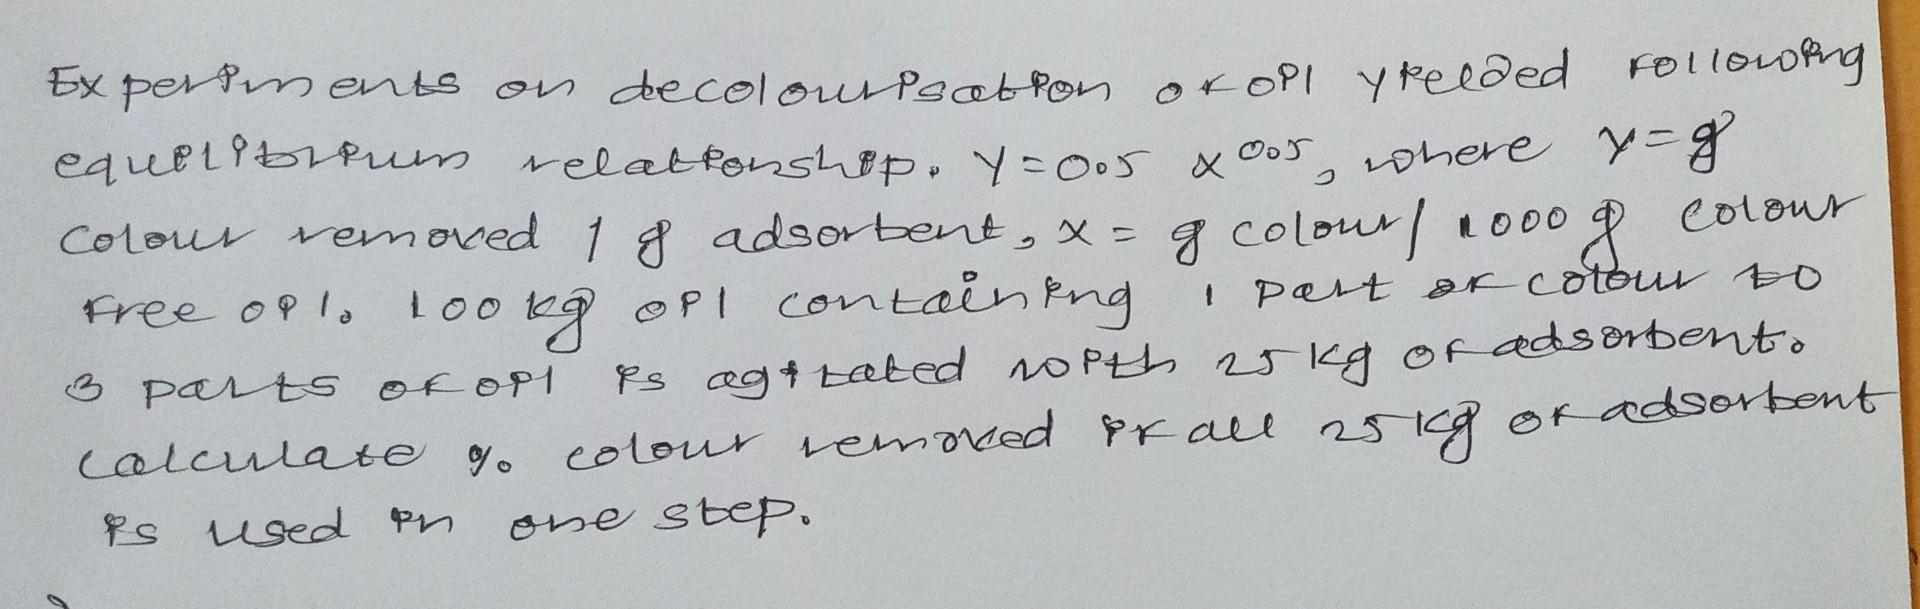 Experiments on decolourisation of oil yielded following
equilibrium relationship. Y=0.5 x^0.5, where Y=g
colour removed 1 g adsorbent, x = g colour/ 1000 g colour
free oil. 100 kg oil containing 1 part of colour to
3 parts of oil is agitated with 25 kg of adsorbent.
calculate % colour removed if all 25 kg of adsorbent
is used in one step.